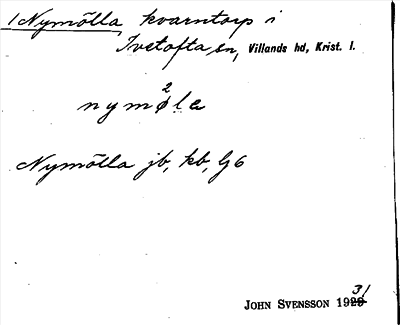 1 Nymölla, kvarntorp i
Ivetofta sn, Villands hd, Krist. l.
nymø²la
Nymölla jb, kb, G6
JOHN SVENSSON 1929 31